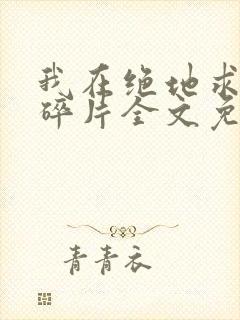 我在绝地求
碎片全文免
青青衣